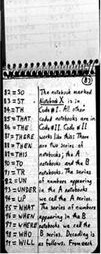 (83)
82 = SO The notebook marked
83 = ST Notebook X is in
84 = TH Code #II. All other
85 = THAT coded notebooks are in
86 = THE Code #I. Code II
87 = THERE works like this: There
88 = THEN are two series of
89 = THIS notebooks; the A
90 = TO notebooks and the B
91 = TR notebooks. The series
92 = UN of numbers appearing
93 = UNDER in the A notebooks
94 = UP we call the A series.
95 = WHAT The series of numbers
96 = WHEN appearing in the B
97 = WHERE notebooks we call the
98 = WHO B series. Decoding is
99 = WILL as follows. From each